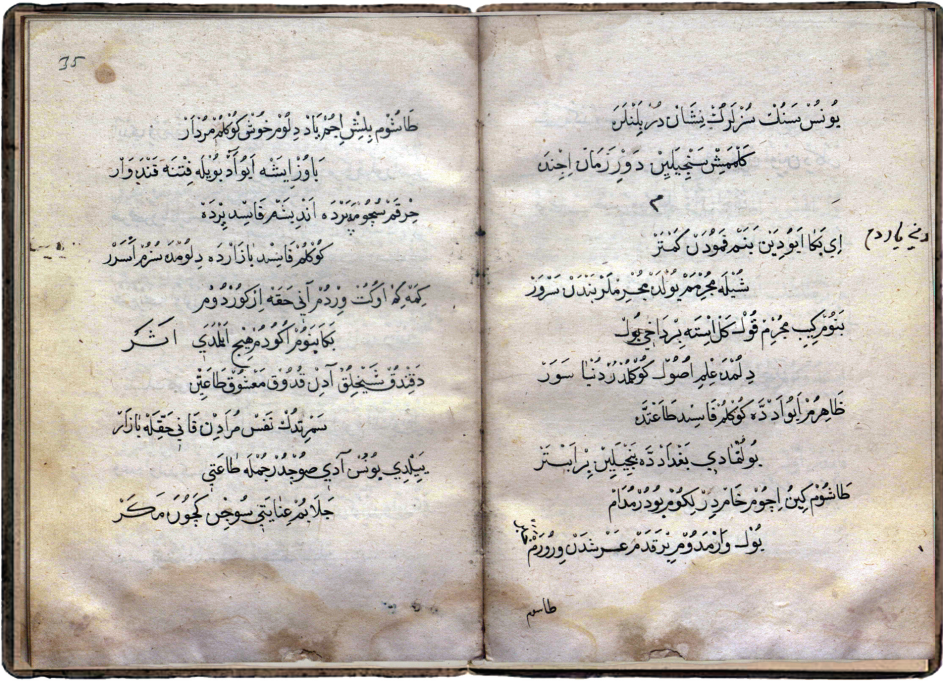 يُونُسْ سَنُكْ سُزْلَرُكْ نِشَانْ دُرْ بِلَنْلَرَ
كَلَمَمِشْ سَنْجِيلَيِنْ دَوْرِ زَمَانْ اِجِنْدَ
م
اِي بَكَا اَيُو دِيَنْ بَنَمْ قَمُودَنْ كَمْتَرْ
شُيْلَه مُجْرِمَمْ يُولْدَه مُجْرِمْلَرْ بَنْدَنْ سَرْوَرْ
بَنُومْ كِبِ مُجْرِمْ قُولْ كَلْ اِسْتَه بِرْ دَاخِي بُولْ
دِلُمْدَه عِلْمِ اُصُولْ كُوكُلُمْدُرْ دُنْيَا سَوَرْ
ظَاهِرُمْ اَيُو اَدْدَه كُوكُلُمْ فَاسِدْ طَاعَتْدَه
بُولُنْمَادِي بَغْدَادْدَه بَنْجِيلَيِنْ بِرْ اَبْتَرْ
طَاشُومْ كِينْ اِجُومْ خَامْدِرْ دِلُكُومْ بُودُرْ مُدَامْ
يُولْ وَارْمَدُومْ بِرْ قَدَمْ عَرْشْدَنْ وِرُورَمْ
طاشوم
35
طَاشُومْ بِلِشْ اِجُمْ يَادْ دِلُومْ خُوشْ كُوكُلُمْ مُرْدَارْ
يَاوُزْ اِيشَه اَيُو اَدْ بُويْلَه فِتْنَه قَنْدَه وَارْ
خِرْقَمْ سُجُومَه پَرْدَه اَنْدِيشَمْ فَاسِدْ يِرْدَه
كُوكُلُمْ فَاسِدْ بَازَارْدَه دِلُومْدَه سُزُمْ اَسْرَرْ
كِمَه كِمْ اوكُتْ وِرْدُمْ اَنِي حَقَّه اِرْكُورْدُومْ
بَكَا بَنُومْ اُكُودُمْ هِيچْ اَيْلَمَدِي اَثَرْ
دَقِنْدُقْ شَيْخْلِقْ آدِنْ قُدُوقْ مَعْشُوقْ طَاعَتِنْ
وِيرْدُكْ نَفْسْ مُرَادِنْ قَانِي حَقِّلَه بَازَارْ
بِيلْدِي يُونُسْ آدِي صُوجْدُرْ جُمْلَه طَاعَتِي
جَلَابُمْ عِنَايَتِي سُوچِنْ كَچُورَ مَكَرْ